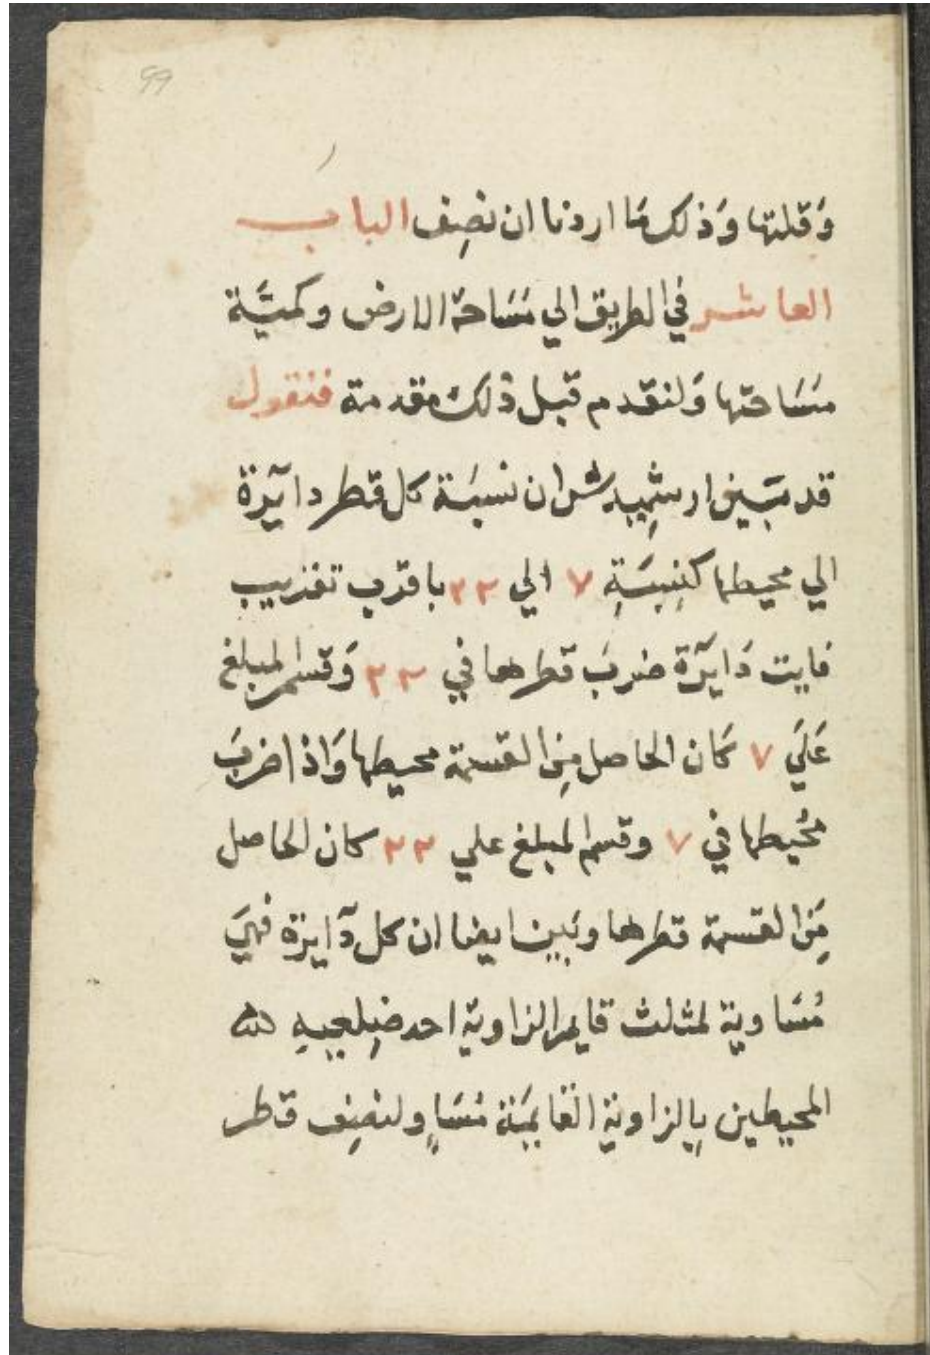 99
وَقلتها وَذلك مَا اردنا ان نصِف الباب
العاشر في الطريق الي مَسَاحة الارض وكميَّة
مسَاحتها وَلنقدم قبل ذلك مقدمة فنقول
قد تبَين ارشميدش ان نسبَة كل قطر دايَرة
الي محيطها كنِسبَةِ ٧ الي ٢٢ باقرب تقريب
فايت دَايَرة ضربَ قطرها في ٢٢ وَقسم المبلغ
عَليَ ٧ كَان الحاصل مِن القسمة محيطها وَاذا ضربَ
محُيطها في ٧ وقسم المبلغ علي ٢٢ كان الحاصل
مِن القسمة قطرها وبَين ايضا ان كل دآيرة فهيَ
مُسَاوية لمثلث قايم الزاوية احد ضِلعيهِ
المحيطين بِالزاوية القايمَة مُسَاوٍ لنصِف قطر